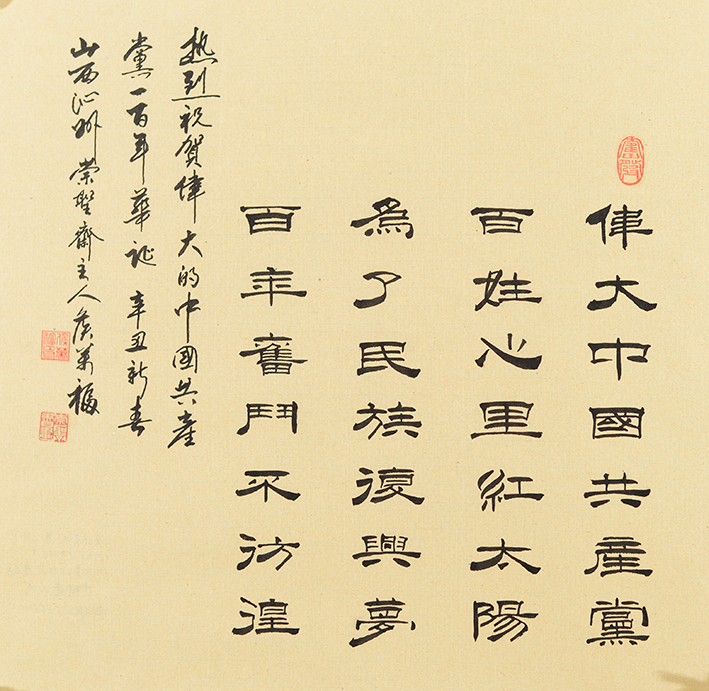 偉大中國共產黨
百姓心里紅太陽
為了民族復興夢
百年奮鬥不彷徨
热烈祝賀偉大的中國共產
黨一百年華诞 辛丑新春
山西沁州榮聖齋主人侯萬福